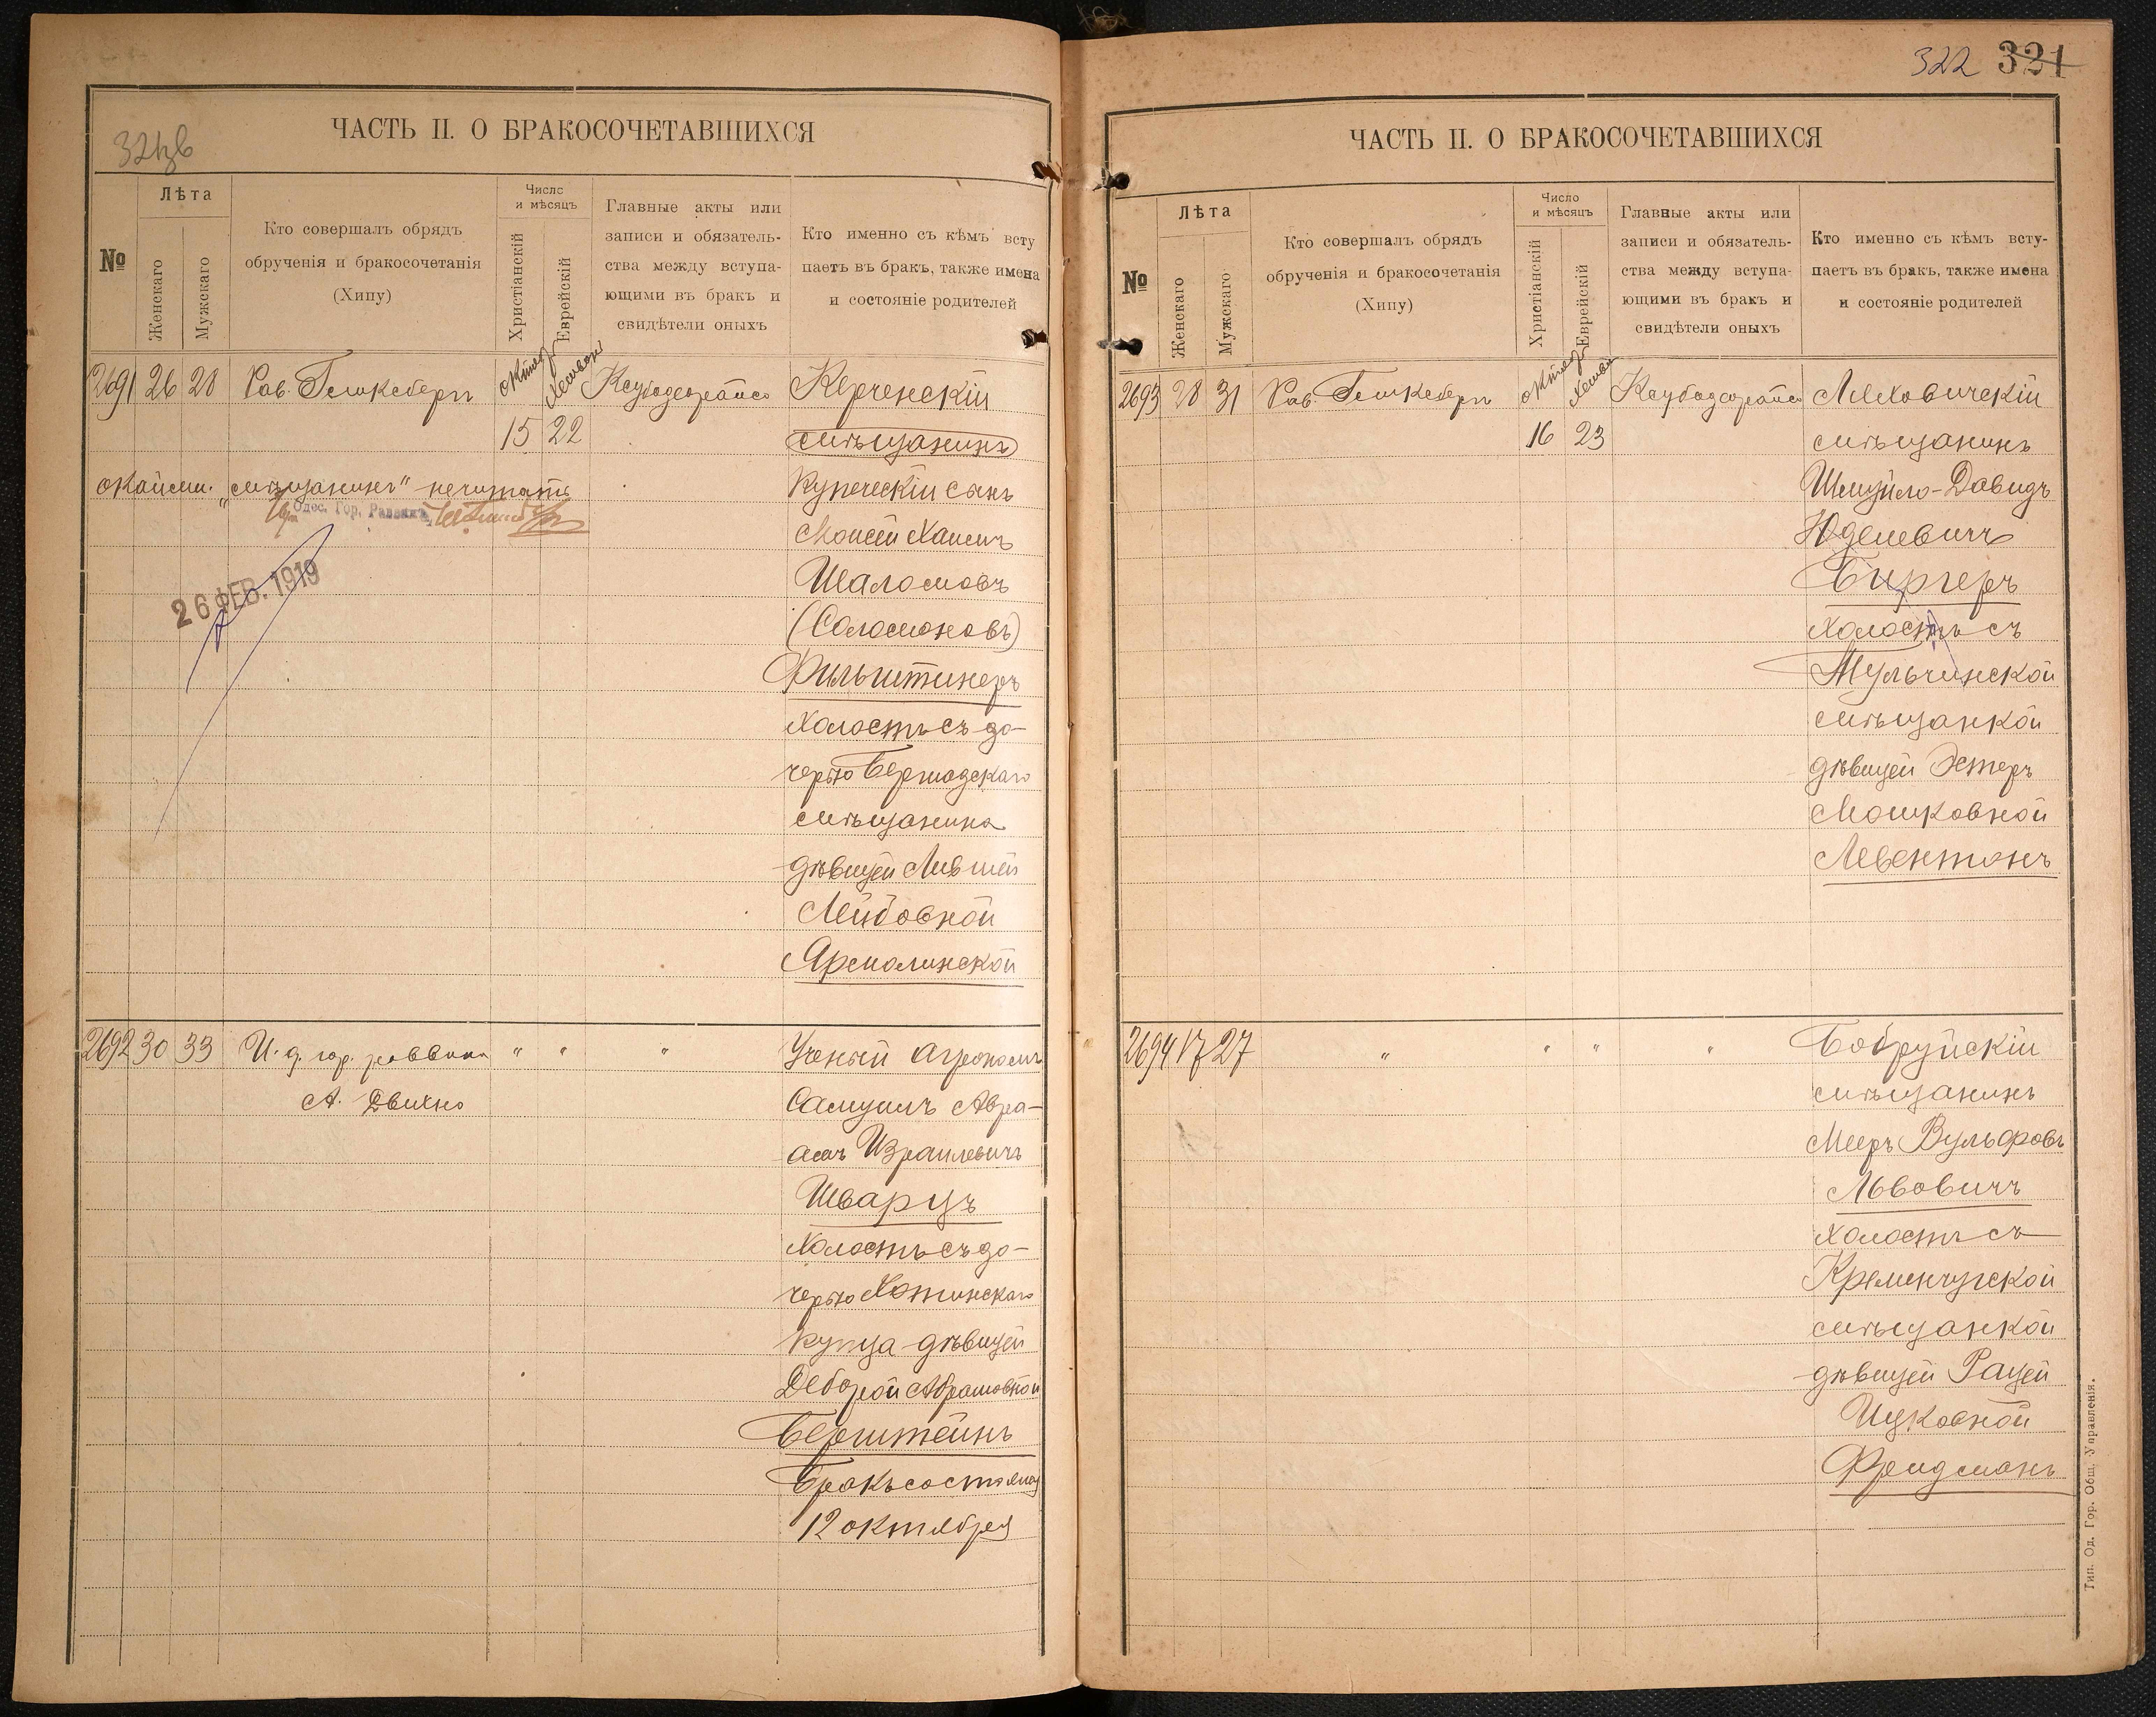 321 зв
ЧАСТЬ II. О БРАКОСОЧЕТАВШИХСЯ
№
Лѣта
Женскаго
Мужскаго
Кто совершалъ обрядъ
обрученія и бракосочетанія
(Хипу)
Число
и мѣсяцъ
Христіанскій
Еврейскій
Главные акты или
записи и обязатель-
ства между вступа-
ющими въ бракъ и
свидѣтели оныхъ
Кто именно съ кѣмъ всту
паетъ въ бракъ, также имена
и состояніе родителей
2691 26 28 Рав. Гинксбергъ октяб Хешван Ксубадеорайсо Керченскій
15 22 мѣщанинъ
окайм. „мѣщанинъ" нечитать
Одес. Гор. Раввинъ
купеческій сынъ
Моисей Хаимъ
Шаломовъ
(Соломоновъ)
Фильштинеръ
холостъ съ до-
26 ФЕВ. 1919
черью Бершадскаго
мѣщанина
дѣвицей Лившей
Лейбовной
Ярмолинской
2692 30 33 И. д. гор. раввина " " " Ученый агрономъ
А. Двихно Самуилъ Авра-
амъ Израилевичъ
Шварцъ
холостъ съ до-
черью Хотинскаго
купца дѣвицей
Деборой Абрамовной
Берштейнъ
Бракъ состоялся
12 октября
322 321
ЧАСТЬ II. О БРАКОСОЧЕТАВШИХСЯ
№
Лѣта
Женскаго
Мужскаго
Кто совершалъ обрядъ
обрученія и бракосочетанія
(Хипу)
Число
и мѣсяцъ
Христіанскій
Еврейскій
Главные акты или
записи и обязатель-
ства между вступа-
ющими въ бракъ и
свидѣтели оныхъ
Кто именно съ кѣмъ всту-
паетъ въ бракъ, также имена
и состояніе родителей
2693 28 31 Рав. Гинксбергъ октяб Хешван Ксубадеорайсо Ляховичскій
16 23 мѣщанинъ
Шмуйло-Давидъ
Юделевичъ
Биргеръ
холостъ съ
Тульчинской
мѣщанкой
дѣвицей Эстеръ
Мошковной
Левентонъ
2694 17 27 " " " " Бобруйскій
мѣщанинъ
Мееръ Вульфовъ
Львовичъ
холостъ съ
Кременчугской
мѣщанкой
дѣвицей Рацей
Ицковной
Фридманъ
Тип. Од. Гор. Общ. Управленія.